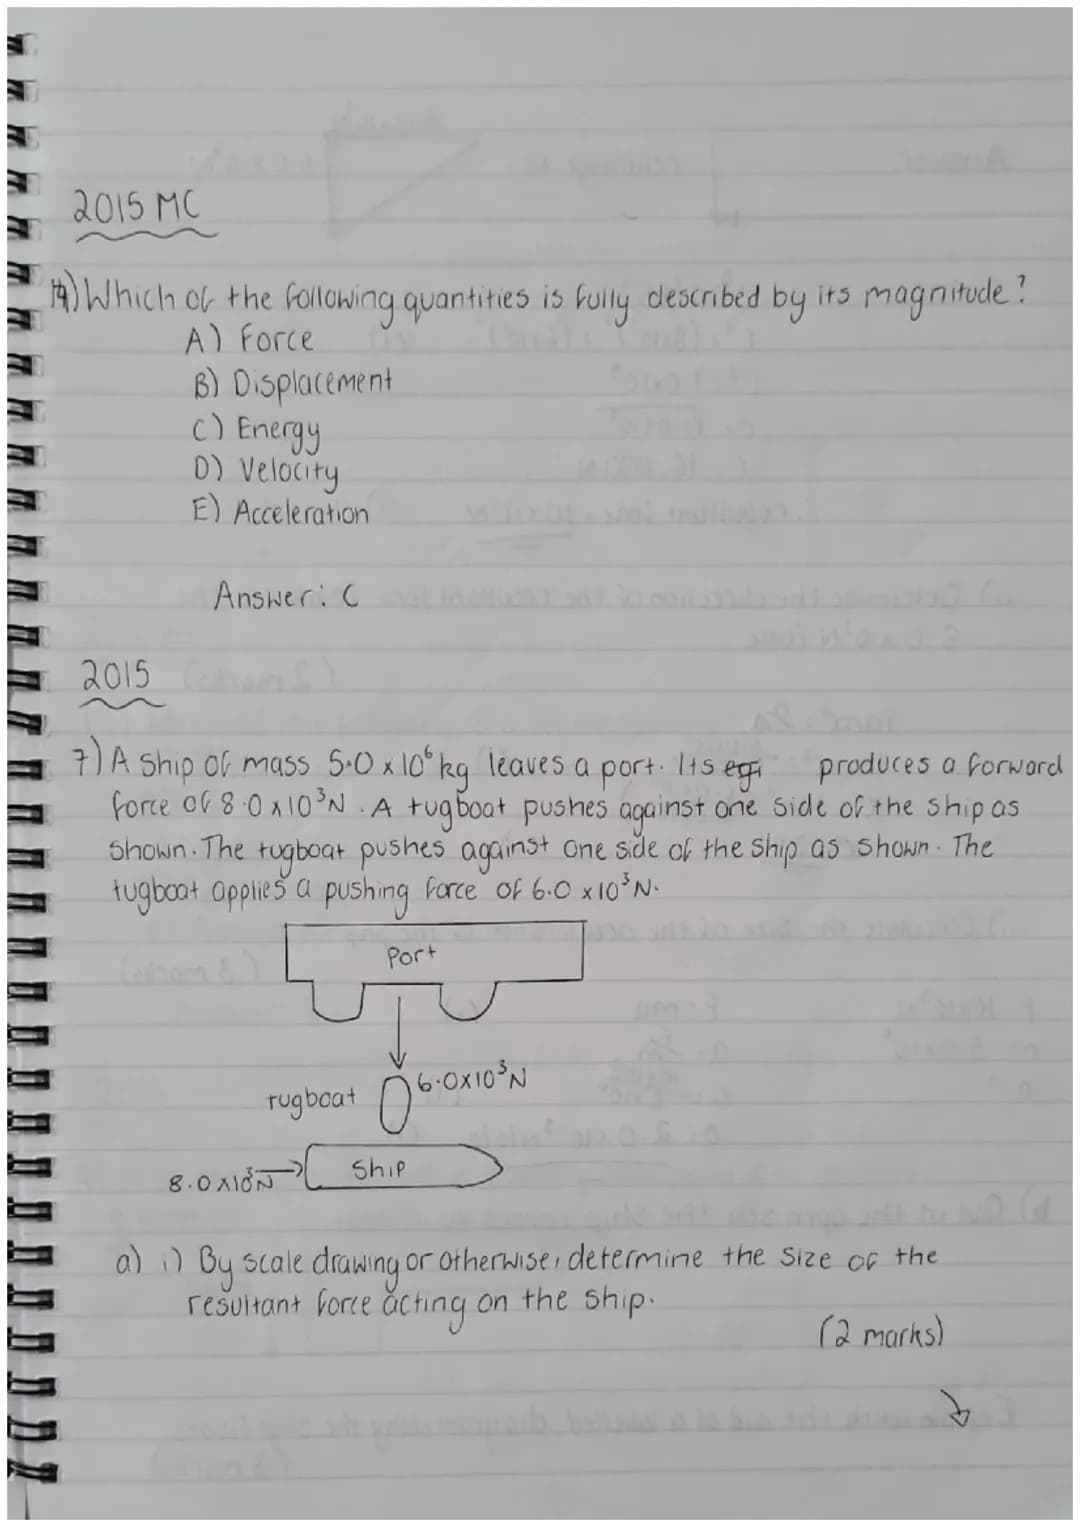 2015 MC
14) Which of the following quantities is fully described by its magnitude?
A) Force
B) Displacement
C) Energy
D) Velocity
E) Acceleration
Answer: C
2015
7) A ship of mass 5.0 x 10⁶ kg leaves a port. Its produces a forward
force of 8.0 x 10³N. A tugboat pushes against one side of the ship as
shown. The tugboat pushes against one side of the ship as shown. The
tugboat applies a pushing force of 6.0 x 10³N.
Port
6.0x10³N
tugboat
Ship
8.0 x 10³N
a) i) By scale drawing or otherwise, determine the size of the
resultant force acting on the ship.
(2 marks)